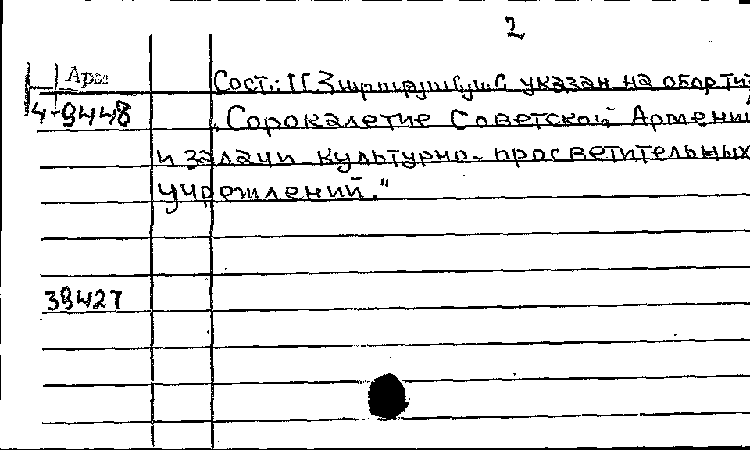 2
Арм
Сост.: указан на обор. тит
4-9448
„Сорокалетие Советской Армении
и задачи культурно-просветительных
учреждений."
39427